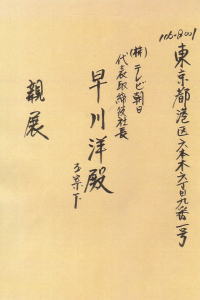 106-8001
東京都港区六本木六丁目九番一号
(株)テレビ朝日
代表取締役社長
早川洋殿
玉案下
親展